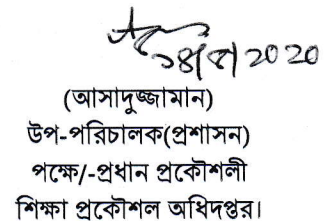 (আসাদুজ্জামান)
উপ-পরিচালক(প্রশাসন)
পক্ষে/-প্রধান প্রকৌশলী
শিক্ষা প্রকৌশল অধিদপ্তর।